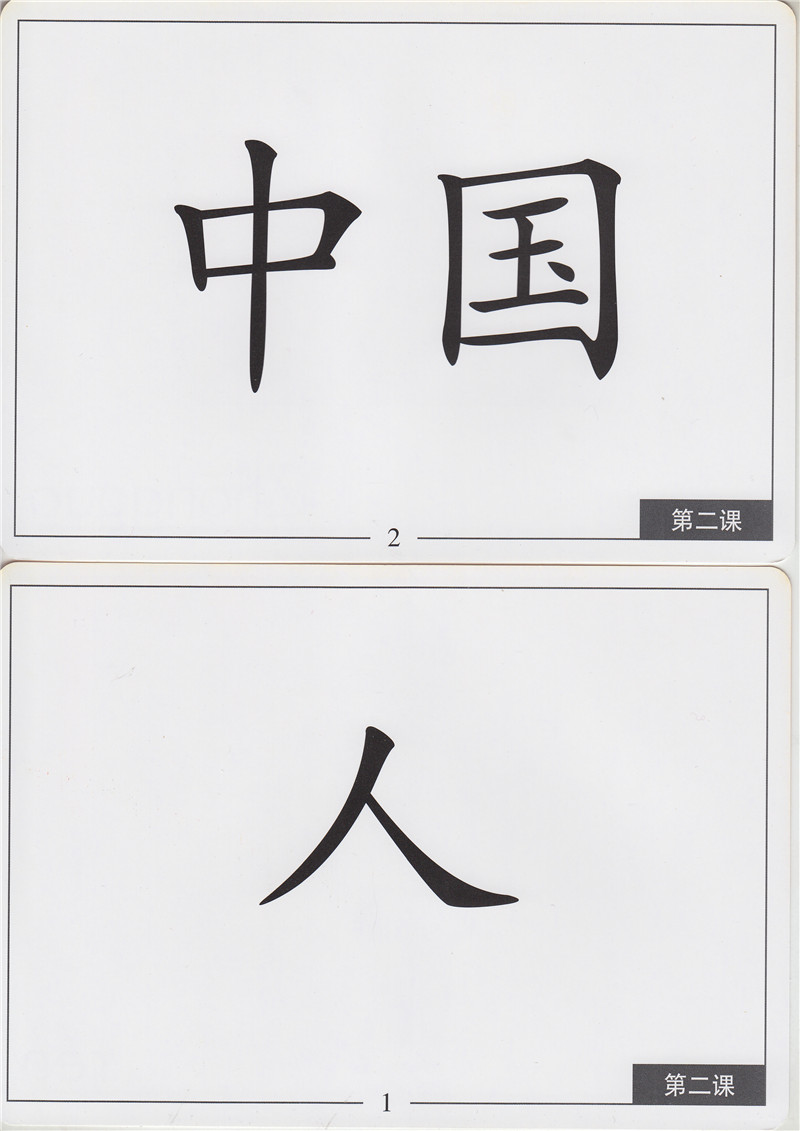 中国
第二课
2
人
第二课
1